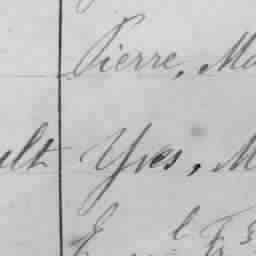 Pierre, Ma
ult Yves, M